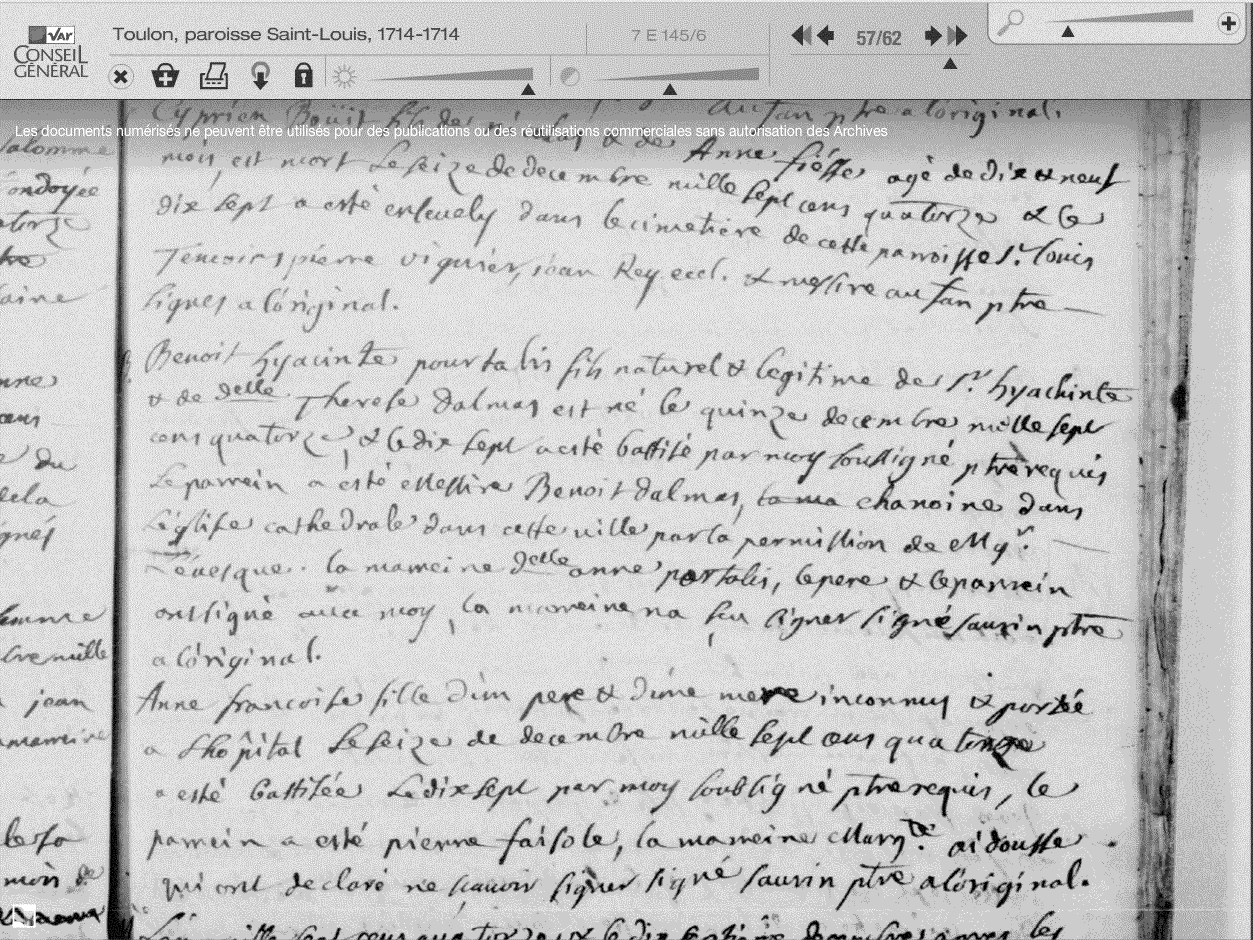 VAR
CONSEIL GÉNÉRAL
Toulon, paroisse Saint-Louis, 1714-1714
7 E 145/6
57/62
Les documents numérisés ne peuvent être utilisés pour des publications ou des réutilisations commerciales sans autorisation des Archives
Cyprien Boüit fils de & de Anne agé de dix & neuf
mois, est mort le seize de decembre mille sept cens quatorze & le
dix sept a esté ensevely dans le cimetiére de cette parroisse St. louis
Temoins pierre viguier, jean Rey eccl. & messire autran ptre
signes a lóriginal.
Benoit hyacinte pourtalis fils naturel & legitime de Sr. hyachinte
& de delle Therese dalmas est né le quinze decembre mille sept
cens quatorze, & le dix sept a esté battisé par moy soussigné ptre requis
Le parrein a ésté Messire Benoit dalmas, chanoine dans
Léglise cathedrale dans cette ville par la permission de Mgr.
Lévesque. la marreine delle anne portalis, le pere & le parrein
ont signé avec moy, la marreine na sçu signer signé saurin ptre
a lóriginal.
Anne francoise fille dun pere & dúne mere inconnus & portée
a Lhôpital Le seize de decembre mille sept cens quatorze
a esté battisée Le dix sept par moy soubsigné ptre requis, le
parrein a esté pierre faisole, la marreine Margte. aidousse
qui ont declaré ne scavoir signer signé saurin ptre a lóriginal.